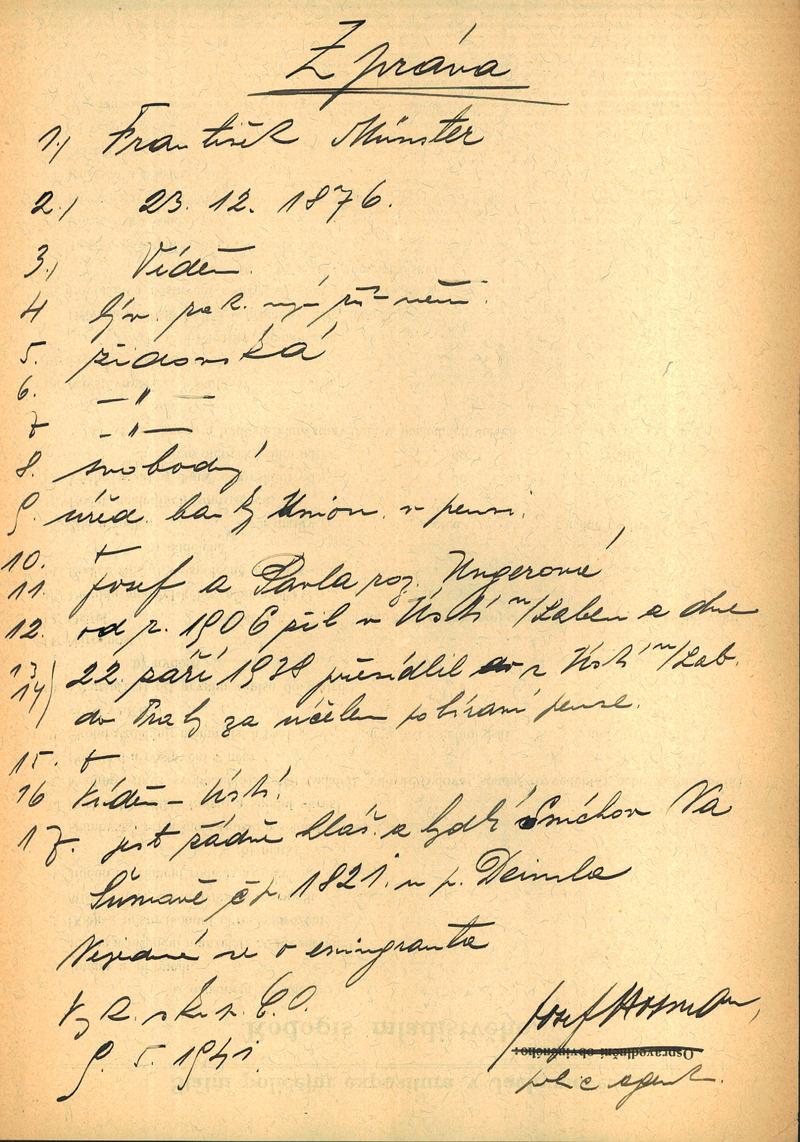 Zpráva
1.) František Münster
2.) 23. 12. 1876.
3.) Vídeň.
4 býv. rak. nyní něm.
5. židovská
6. — " —
7 — " —
8. svobodný
9. úřed. banky Union v pensi.
10. +
11. Josef a Pavla roz. Ungerové
12. od r. 1906 žil v Ústí n/Labem a dne
13) 22 září 1938 přesídlil z Ústí n/Lab.
14) do Prahy za účelem pobírání pense.
15. +
16 Vídeň – Ústí
17. jest řádně hláš. a bydlí Smíchov Na
Šumavě čp. 1821. u p. Deimla
Nejedná se o emingranta
9. 5. 1941.
Josef
Ospravedlnění obviněného:
polic agent.